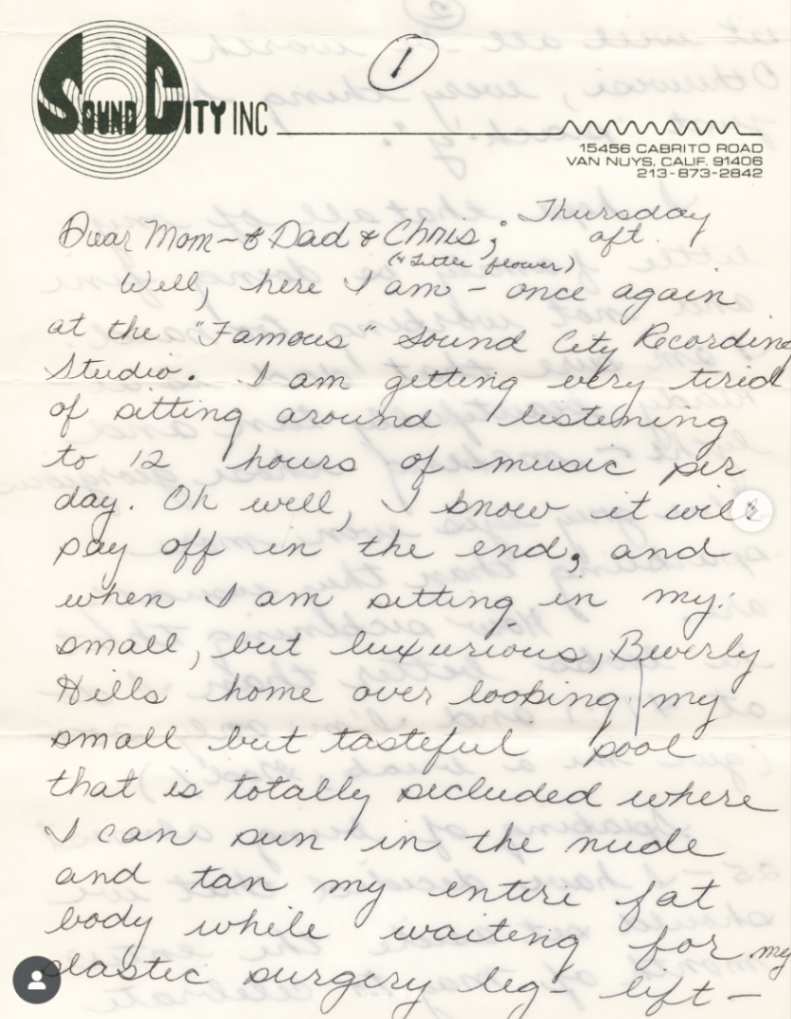 1
SOUND CITY INC
15456 CABRITO ROAD
VAN NUYS, CALIF. 91406
213-873-2842
Thursday
aft
Dear Mom - & Dad & Chris;
("Little flower)
Well, here I am - once again
at the "Famous" Sound City Recording
Studio. I am getting very tired
of sitting around listening
to 12 hours of music per
day. Oh well, I know it will
pay off in the end, and
when I am sitting in my
small, but luxurious, Beverly
Hills home over looking my
small but tasteful pool
that is totally secluded where
I can sun in the nude
and tan my entire fat
body while waiting for my
plastic surgery leg-lift -